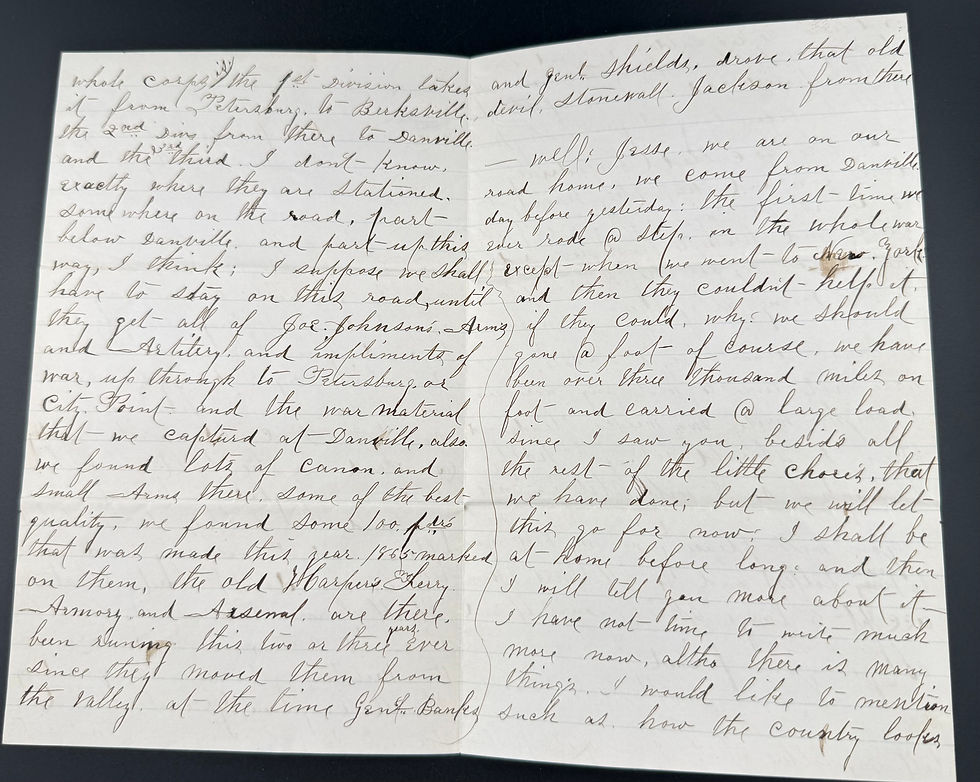 whole corps, the 1st Division takes
it from Petersburg, to Berksville,
the 2ond Divs from there to Danville
and the 3rd third. I dont know,
exactly where they are stationed.
somewhere on the road, part
below Danville, and part up this
way, I think; I suppose we shall
have to stay on this road, until
they get all of Joe. Johnson's, Arms
and Artilery, and impliments of
war, up through to Petersburg or
City Point and the war material
that we capturd at Danville, also.
we found lots of canon, and
small Arms there. some of the best
quality, we found some 100, pdrs
that was made this year. 1865 marked
on them, the old Harpers Ferry.
Armory and Arsenal. are there.
been runing this two or three years. ever
since they moved them from
the valley. at the time Genl. Banks
and Genl. Shields, drove, that old
devil, Stonewall. Jackson from there
— well; Jesse. we are on our
road home, we come from Danville
day before yesterday: the first time we
ever rode @ step, in the whole war
except when we went to New. York
and then they couldn't help it.
if they could, why: we should
gone @ foot of course, we have
been over three thousand miles on
foot and carried @ large load.
since I saw you, besids all
the rest of the little chores, that
we have done; but we will let
this go for now: I shall be
at home before long: and then
I will tell you more about it—
I have not time to write much
more now, altho there is many
things. I would like to mention
such as. how the country looks,